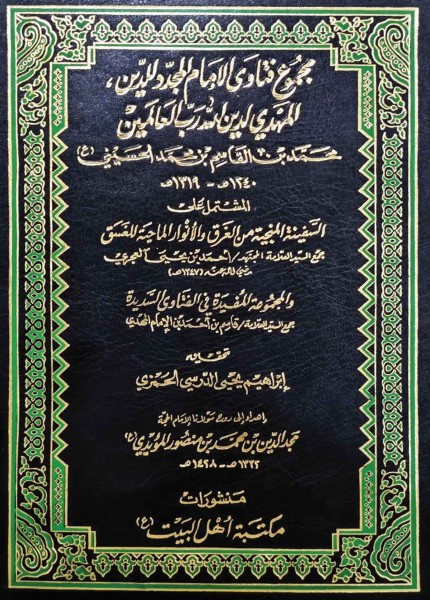 مجموع فتاوى الإمام المجدد للدين،
المهدي لدين الله رب العالمين
محمد بن القاسم بن محمد الحسيني (ع)
١٢٤٠هـ - ١٣١٩هـ
المشتمل على
السفينة المنجية من الغرق والأنوار الماحية للغسق
جمع السيد العلامة المجتهد/ أحمد بن يحيى العجري
رضي الله عنه (١٣٤٧هـ)
والمجموعة المفيدة في الفتاوى السديدة
جمع السيد العلامة/ قاسم بن أحمد بن الإمام المهدي
تحقيق
إبراهيم يحيى الدرسي الحمزي
إهداء إلى روح مولانا الإمام الحجة
مجد الدين بن محمد بن منصور المؤيدي (ع)
١٣٣٢هـ - ١٤٢٨هـ
منشورات
مكتبة أهل البيت (ع)